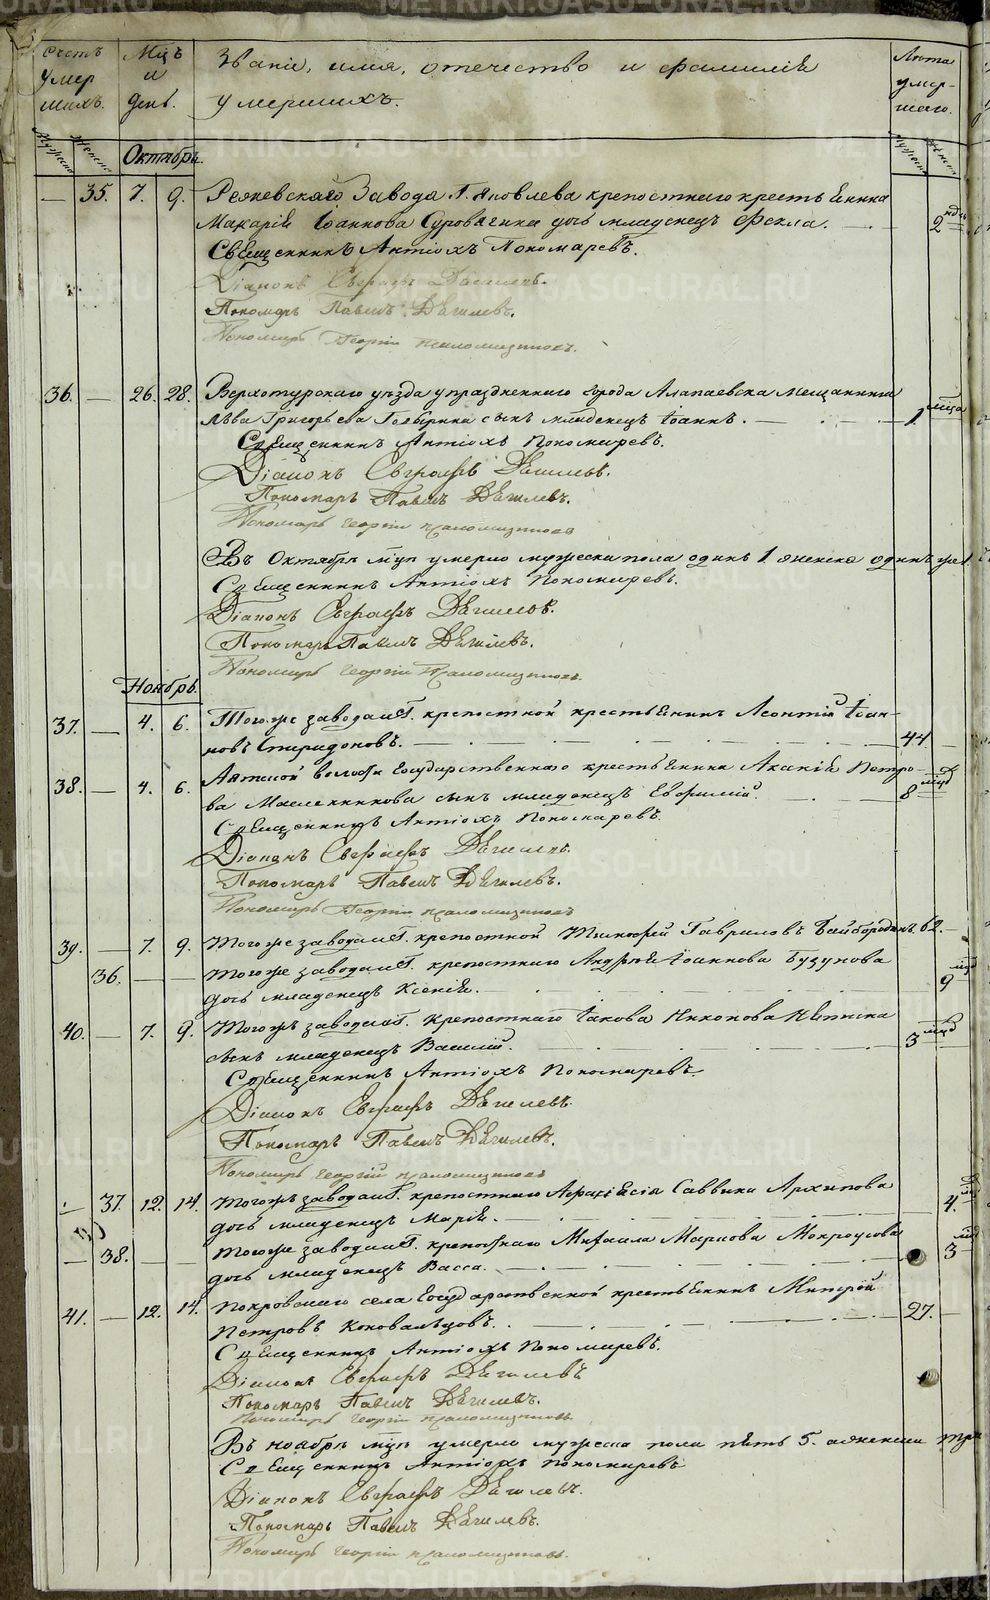 Счетъ умер шихъ.
Мцъ и день.
Званіе, имя, отечество и фамилія умершихъ.
Лѣта умер-шаго.
Мужеска Женска
Октябрь.
— 35. 7. 9. Режевскаго Завода Г. Яковлева крепостнаго крестьянина
Макарія Іоаннова дочь младенецъ Фекла. 2 ндл
Священникъ Антіохъ Пономаревъ.
Діаконъ Евграфъ Дягилевъ.
Пономарь Павелъ Дягилевъ.
Пономарь Георгій
36. — 26. 28. Верхотурскаго уѣзда упраздненнаго города Алапаевска мещанина
Льва Григорьева сынъ младенецъ Іоаннъ. 1 мца
Священникъ Антіохъ Пономаревъ.
Діаконъ Евграфъ Дягилевъ.
Пономарь Павелъ Дягилевъ.
Пономарь Георгій
Въ Октябрѣ мцѣ умерло мужеска пола одинъ 1 женска одинъ же 1
Священникъ Антіохъ Пономаревъ.
Діаконъ Евграфъ Дягилевъ.
Пономарь Павелъ Дягилевъ.
Пономарь Георгій
Ноябрь.
37. — 4. 6. Тогоже завода Г. крепостной крестьянинъ Леонтій Іоан-
новъ Спиридоновъ. 44
38. — 4. 6. волости Государственнаго крестьянина Петро-
ва сынъ младенецъ Евфимій. 8 мцъ
Священникъ Антіохъ Пономаревъ.
Діаконъ Евграфъ Дягилевъ.
Пономарь Павелъ Дягилевъ.
Пономарь Георгій
39. — 7. 9. Тогоже завода Г. крепостной Тимофей Гавриловъ Байбородинъ 62.
36. — — Тогоже завода Г. крепостнаго Андрея Іоаннова Бузунова
дочь младенецъ Ксенія. 9 мцъ
40. — 7. 9. Тогоже завода Г. крепостнаго Іакова Никонова
сынъ младенецъ Василій. 3 мцъ
Священникъ Антіохъ Пономаревъ.
Діаконъ Евграфъ Дягилевъ.
Пономарь Павелъ Дягилевъ.
Пономарь Георгій
— 37. 12. 14. Тогоже завода Г. крепостнаго Саввина Архипова
дочь младенецъ Марія. 4.
— 38. — — Тогоже завода Г. крепостнаго Михаила Маркова Мокроусова
дочь младенецъ Васса. 3
41. — 12. 14. Покровскаго села Государственной крестьянинъ Митрой
Петровъ Коновальцовъ. 27.
Священникъ Антіохъ Пономаревъ.
Діаконъ Евграфъ Дягилевъ
Пономарь Павелъ Дягилевъ.
Пономарь Георгій
Въ ноябрѣ мцѣ умерло мужеска пола пять 5. а женска три
Священникъ Антіохъ Пономаревъ
Діаконъ Евграфъ Дягилевъ.
Пономарь Павелъ Дягилевъ.
Пономарь Георгій
METRIKI.GASO-URAL.RU